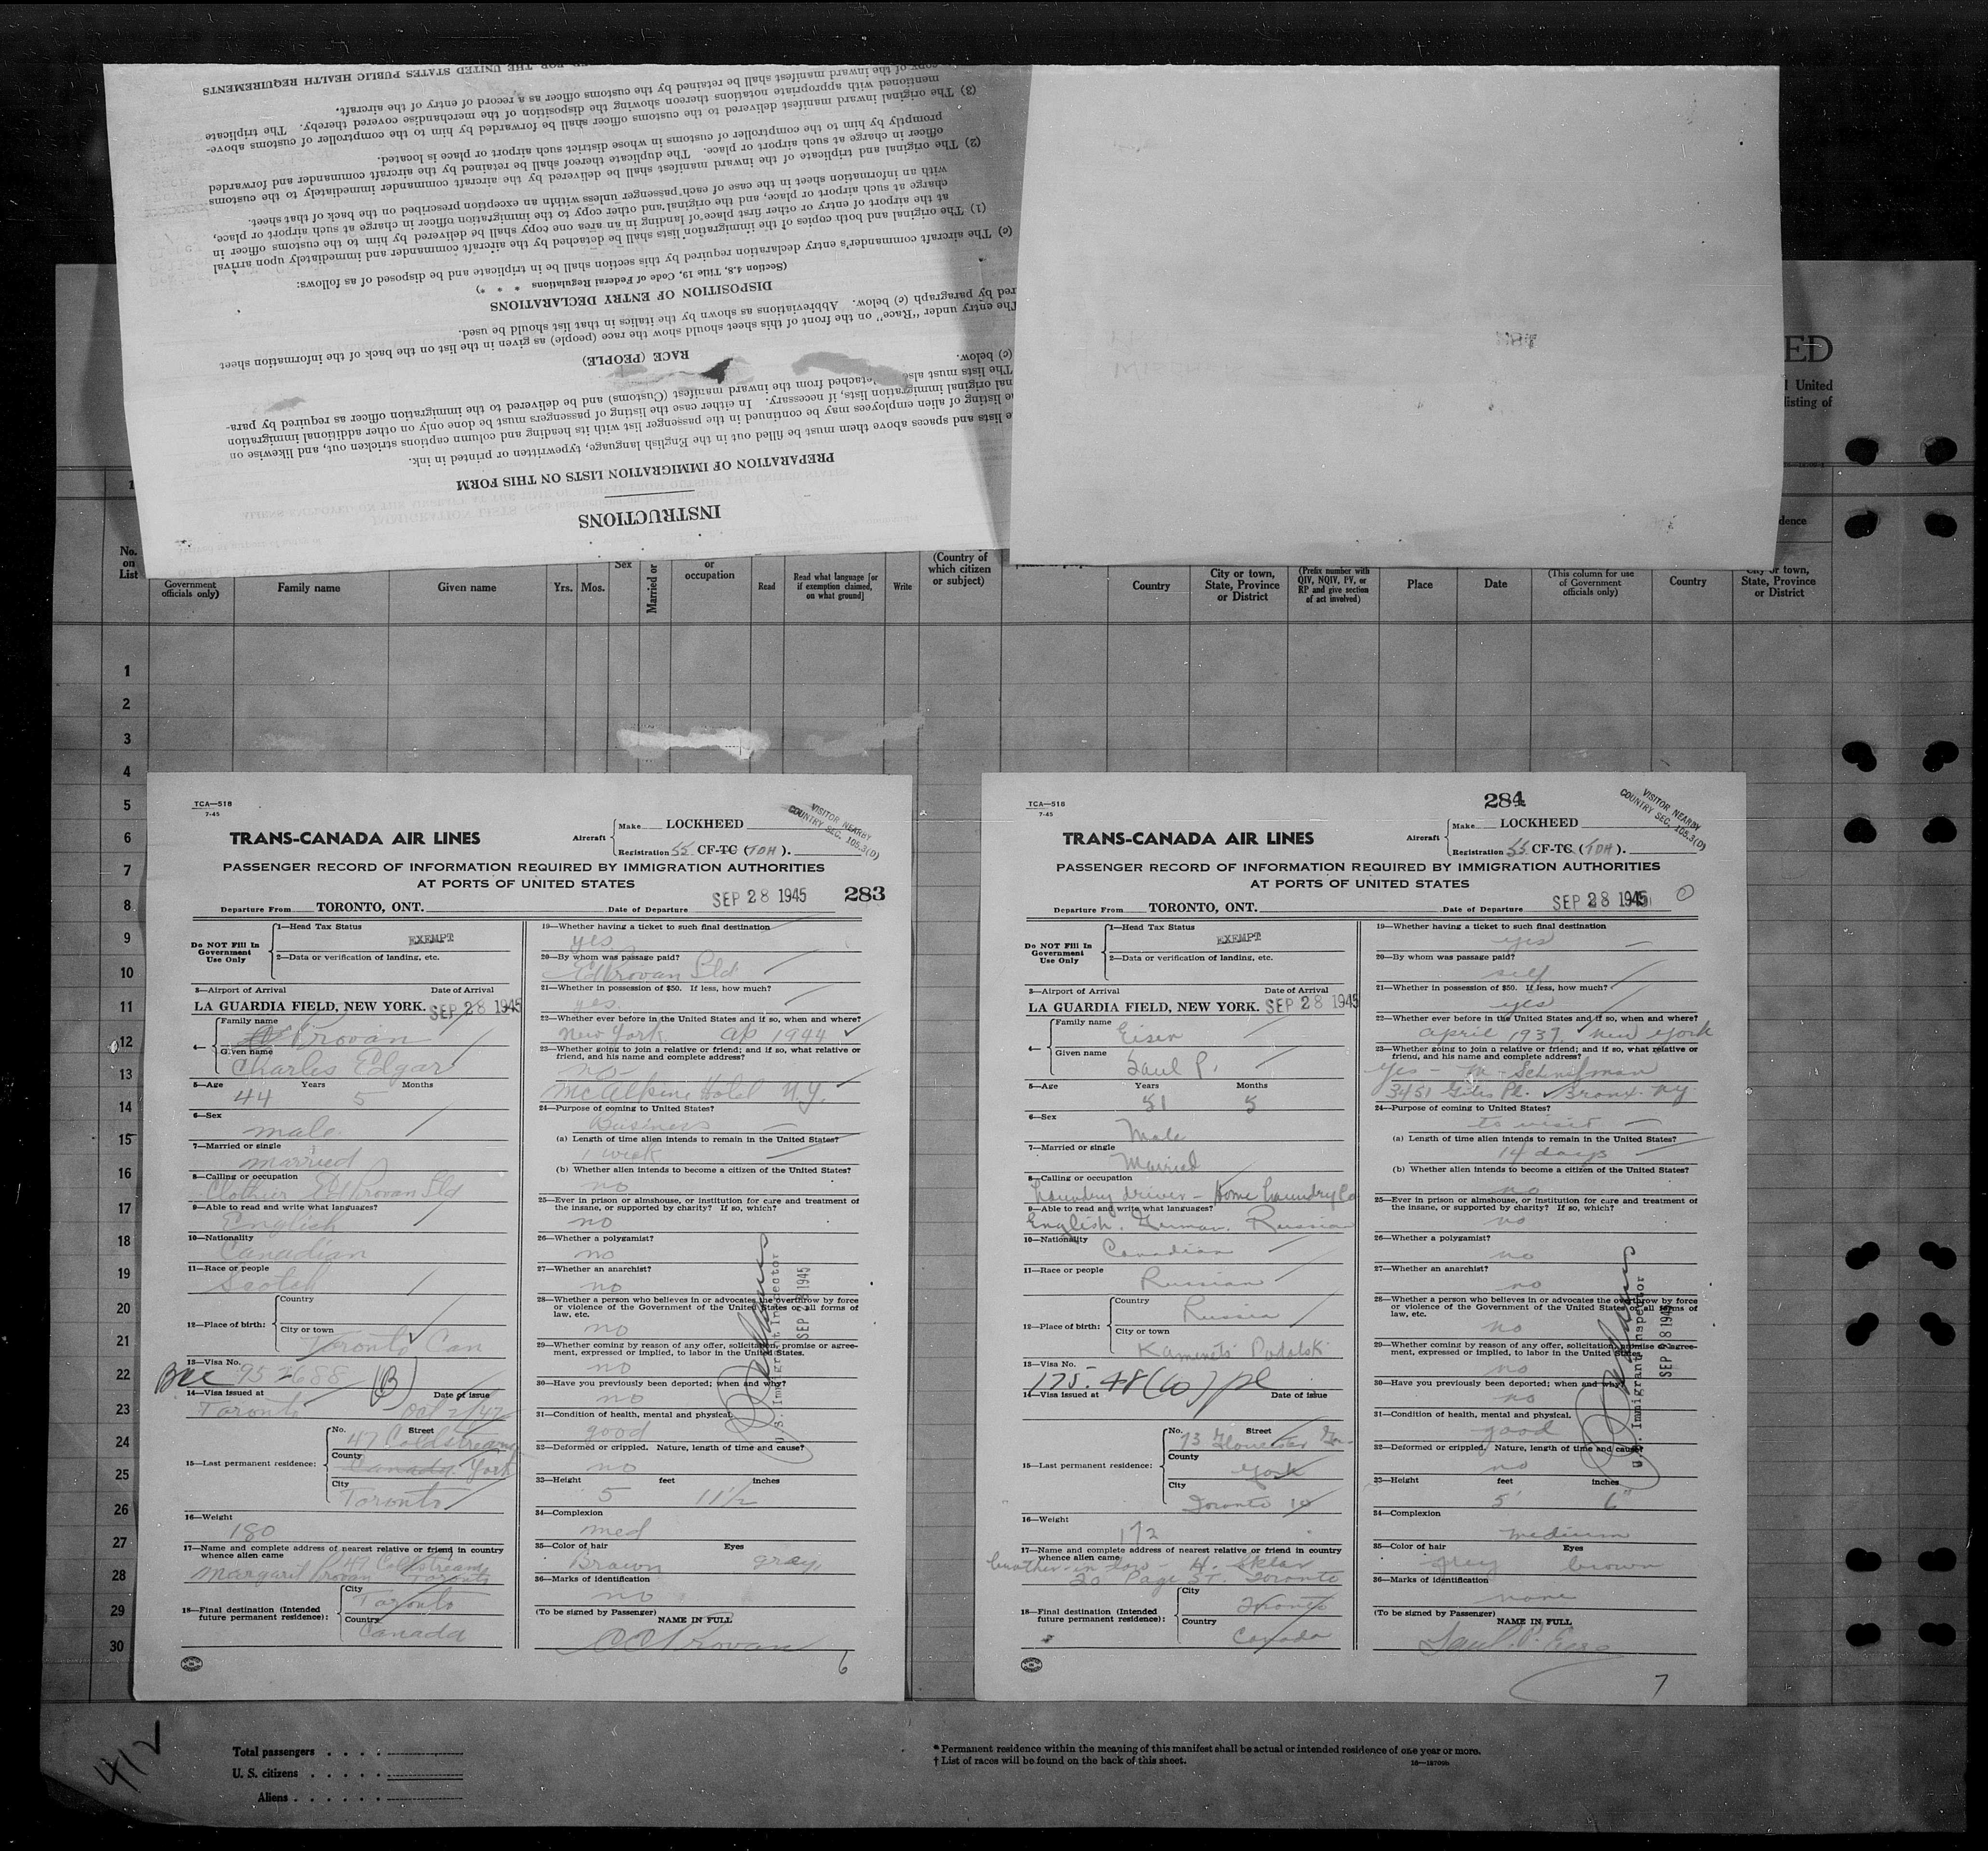 INSTRUCTIONS
PREPARATION OF IMMIGRATION LISTS ON THIS FORM
e lists and spaces above them must be filled out in the English language, typewritten or printed in ink.
e listing of alien employees may be continued in the passenger list with its heading and column captions stricken out, and likewise on
nal original immigration lists, if necessary. In either case the listing of passengers must be done only on other additional immigration
The lists must also detached from the inward manifest (Customs) and be delivered to the immigration officer as required by para-
(c) below.
RACE (PEOPLE)
The entry under "Race" on the front of this sheet should show the race (people) as given in the list on the back of the information sheet
red by paragraph (c) below. Abbreviations as shown by the italics in that list should be used.
DISPOSITION OF ENTRY DECLARATIONS
(Section 4.8, Title 19, Code of Federal Regulations * * *)
(c) The aircraft commander's entry declaration required by this section shall be in triplicate and be disposed of as follows:
(1) The original and both copies of the immigration lists shall be detached by the aircraft commander and immediately upon arrival
at the airport of entry or other first place of landing in an area one copy shall be delivered by him to the customs officer in
charge at such airport or place, and the original and other copy to the immigration officer in charge at such airport or place,
with an information sheet in the case of each passenger unless within an exception prescribed on the back of that sheet.
(2) The original and triplicate of the inward manifest shall be delivered by the aircraft commander immediately to the customs
officer in charge at such airport or place. The duplicate thereof shall be retained by the aircraft commander and forwarded
promptly by him to the comptroller of customs in whose district such airport or place is located.
(3) The original inward manifest delivered to the customs officer shall be forwarded by him to the comptroller of customs above-
mentioned with appropriate notations thereon showing the disposition of the merchandise covered thereby. The triplicate
copy of the inward manifest shall be retained by the customs officer as a record of entry of the aircraft.
FOR THE UNITED STATES PUBLIC HEALTH REQUIREMENTS
ED
United
listing of
dence
No. on List
Government officials only)
Family name
Given name
Yrs.
Mos.
Sex
Married or
or occupation
Read
Read what language [or if exemption claimed, on what ground]
Write
(Country of which citizen or subject)
Country
City or town, State, Province or District
(Prefix number with QIV, NQIV, PV, or RP and give section of act involved)
Place
Date
(This column for use of Government officials only)
Country
City or town, State, Province or District
1
2
3
4
5
6
7
8
9
10
11
12
13
14
15
16
17
18
19
20
21
22
23
24
25
26
27
28
29
30
TCA—518
7-45
TRANS-CANADA AIR LINES
Aircraft
Make LOCKHEED
Registration 55 CF-TC (TDH).
VISITOR NEARBY
COUNTRY SEC. 105.3(D)
PASSENGER RECORD OF INFORMATION REQUIRED BY IMMIGRATION AUTHORITIES
AT PORTS OF UNITED STATES
283
Departure From TORONTO, ONT. Date of Departure SEP 28 1945
Do NOT Fill In Government Use Only
1—Head Tax Status EXEMPT
2—Data or verification of landing, etc.
3—Airport of Arrival Date of Arrival
LA GUARDIA FIELD, NEW YORK. SEP 28 1945
4— Family name Provan
Given name Charles Edgar
5—Age Years Months
44 5
6—Sex
male
7—Married or single
married
8—Calling or occupation
Clothier Ed Provan Ltd
9—Able to read and write what languages?
English
10—Nationality
Canadian
11—Race or people
Scotch
12—Place of birth: Country
City or town
Toronto Can
13—Visa No.
BCC 952688 (B)
14—Visa issued at Date of issue
Toronto Oct 2/42
15—Last permanent residence: No. Street
47 Coldstream
County
Canada York
City
Toronto
16—Weight
180
17—Name and complete address of nearest relative or friend in country
whence alien came
47 Coldstream
Margaret Provan Toronto
18—Final destination (Intended future permanent residence): City
Toronto
Country
Canada
19—Whether having a ticket to such final destination
yes
20—By whom was passage paid?
Ed Provan Ltd
21—Whether in possession of $50. If less, how much?
yes.
22—Whether ever before in the United States and if so, when and where?
New York Ap 1944
23—Whether going to join a relative or friend; and if so, what relative or
friend, and his name and complete address?
no
McAlpine Hotel N.Y.
24—Purpose of coming to United States?
Business
(a) Length of time alien intends to remain in the United States?
1 week
(b) Whether alien intends to become a citizen of the United States?
no
25—Ever in prison or almshouse, or institution for care and treatment of
the insane, or supported by charity? If so, which?
no
26—Whether a polygamist?
no
27—Whether an anarchist?
no
28—Whether a person who believes in or advocates the overthrow by force
or violence of the Government of the United States or all forms of
law, etc.
no
29—Whether coming by reason of any offer, solicitation, promise or agree-
ment, expressed or implied, to labor in the United States.
no
30—Have you previously been deported; when and why?
no
31—Condition of health, mental and physical.
good
32—Deformed or crippled. Nature, length of time and cause?
no
33—Height feet inches
5 11½
34—Complexion
med
35—Color of hair Eyes
Brown gray
36—Marks of identification
no
(To be signed by Passenger)
NAME IN FULL
C E Provan
U.S. Immigrant Inspector
SEP 28 1945
6
284
TCA—518
7-45
TRANS-CANADA AIR LINES
Aircraft
Make LOCKHEED
Registration 55 CF-TC (TDH).
VISITOR NEARBY
COUNTRY SEC. 105.3(D)
PASSENGER RECORD OF INFORMATION REQUIRED BY IMMIGRATION AUTHORITIES
AT PORTS OF UNITED STATES
Departure From TORONTO, ONT. Date of Departure SEP 28 1945
Do NOT Fill In Government Use Only
1—Head Tax Status EXEMPT
2—Data or verification of landing, etc.
3—Airport of Arrival Date of Arrival
LA GUARDIA FIELD, NEW YORK. SEP 28 1945
4— Family name Eisen
Given name Saul P.
5—Age Years Months
51 5
6—Sex
Male
7—Married or single
Married
8—Calling or occupation
Laundry driver - Home Laundry Co
9—Able to read and write what languages?
English. German. Russian
10—Nationality
Canadian
11—Race or people
Russian
12—Place of birth: Country
Russia
City or town
Kamenets Podolsk
13—Visa No.
175.48(b) pl
14—Visa issued at Date of issue
15—Last permanent residence: No. Street
73 Gloucester
County
York
City
Toronto 10
16—Weight
172
17—Name and complete address of nearest relative or friend in country
whence alien came
brother in law - H. Sklar
20 Page St. Toronto
18—Final destination (Intended future permanent residence): City
Toronto
Country
Canada
19—Whether having a ticket to such final destination
yes
20—By whom was passage paid?
self
21—Whether in possession of $50. If less, how much?
yes
22—Whether ever before in the United States and if so, when and where?
april 1937. New York
23—Whether going to join a relative or friend; and if so, what relative or
friend, and his name and complete address?
yes - M - Schinifman
3451 Giles Pl. Bronx. NY
24—Purpose of coming to United States?
to visit
(a) Length of time alien intends to remain in the United States?
14 days
(b) Whether alien intends to become a citizen of the United States?
no
25—Ever in prison or almshouse, or institution for care and treatment of
the insane, or supported by charity? If so, which?
no
26—Whether a polygamist?
no
27—Whether an anarchist?
no
28—Whether a person who believes in or advocates the overthrow by force
or violence of the Government of the United States or all forms of
law, etc.
no
29—Whether coming by reason of any offer, solicitation, promise or agree-
ment, expressed or implied, to labor in the United States.
no
30—Have you previously been deported; when and why?
no
31—Condition of health, mental and physical.
good
32—Deformed or crippled. Nature, length of time and cause?
no
33—Height feet inches
5' 6"
34—Complexion
medium
35—Color of hair Eyes
grey brown
36—Marks of identification
none
(To be signed by Passenger)
NAME IN FULL
Saul. P. Eisen
U.S. Immigrant Inspector
SEP 28 1945
7
412
Total passengers
U. S. citizens
Aliens
* Permanent residence within the meaning of this manifest shall be actual or intended residence of one year or more.
† List of races will be found on the back of this sheet.